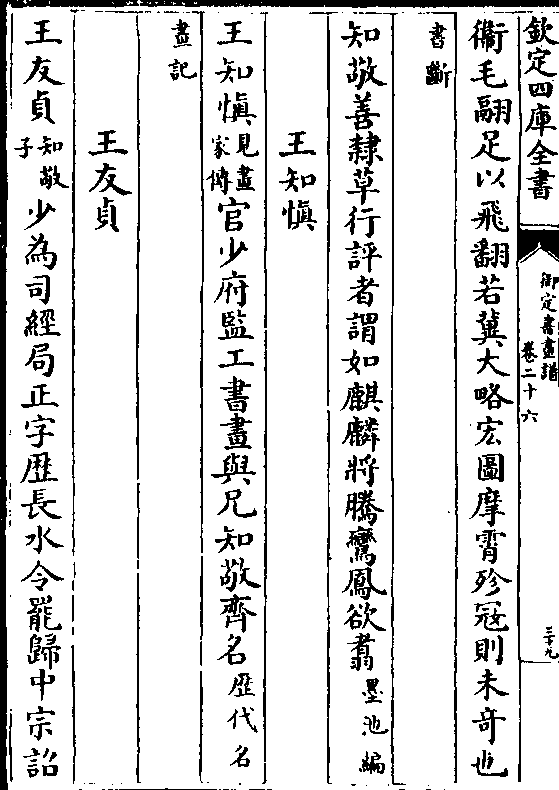 欽定四庫全書
御定書畫譜
卷二十六
三十九
衞毛翮足以飛翻若冀大略宏圖摩霄殄冦則未竒也
書斷
知敬善隸草行評者謂如麒麟將騰鸞鳳欲翥墨池編
王知慎
王知慎見畫家傳官少府監工書畫與兄知敬齊名歴代名
畫記
王友貞
王友貞知敬子少為司經局正字歴長水令罷歸中宗詔